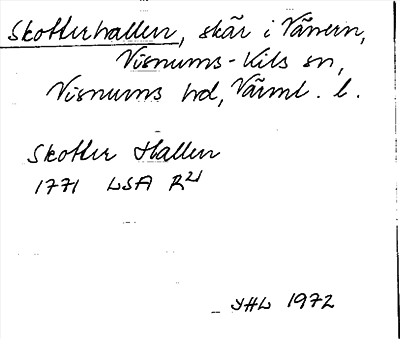 Skotterhallen, skär i Vänern,
Visnums-Kils sn,
Visnums hd, Värml. l.
Skotter Hallen
1771 LSA R21
YHL 1972